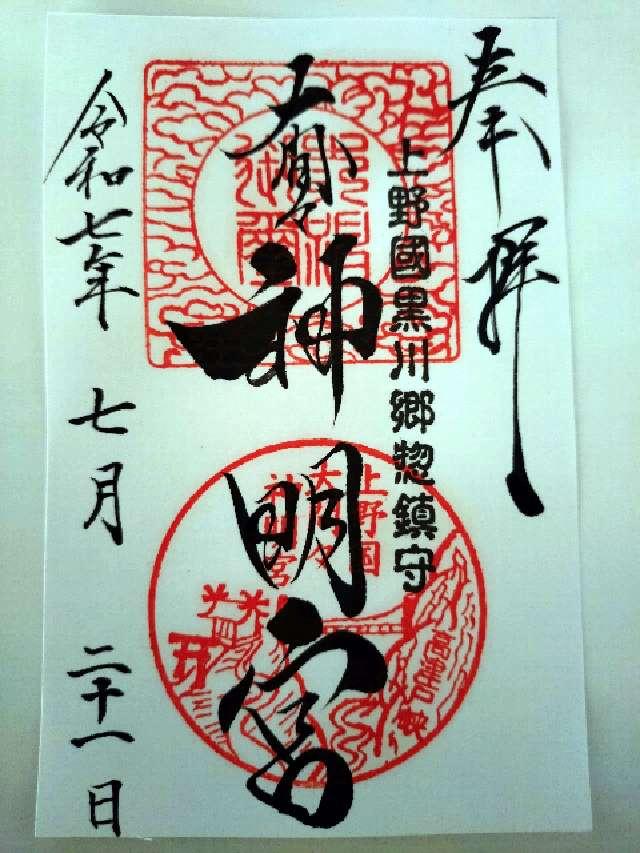 奉拝
上野國黒川郷惣鎮守
大間々
神明宮
上野国
大間々
神明宮
高津戸峡
令和七年
七月
二十一日